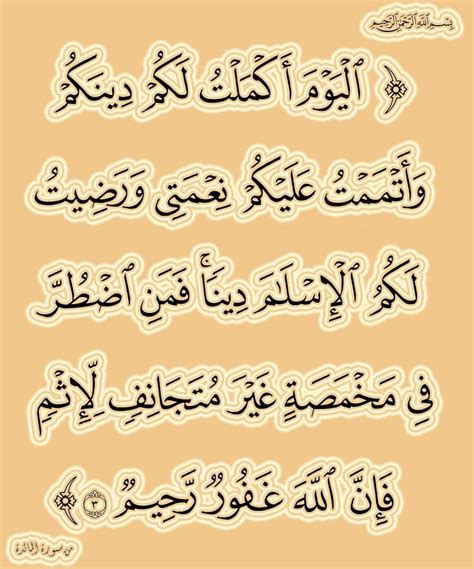 بِسْمِ ٱللَّهِ ٱلرَّحْمَٰنِ ٱلرَّحِيمِ
﴿ ٱلْيَوْمَ أَكْمَلْتُ لَكُمْ دِينَكُمْ
وَأَتْمَمْتُ عَلَيْكُمْ نِعْمَتِى وَرَضِيتُ
لَكُمُ ٱلْإِسْلَٰمَ دِينًا ۚ فَمَنِ ٱضْطُرَّ
فِى مَخْمَصَةٍ غَيْرَ مُتَجَانِفٍ لِّإِثْمٍ
فَإِنَّ ٱللَّهَ غَفُورٌ رَّحِيمٌ ٣ ﴾
من سورة المائدة